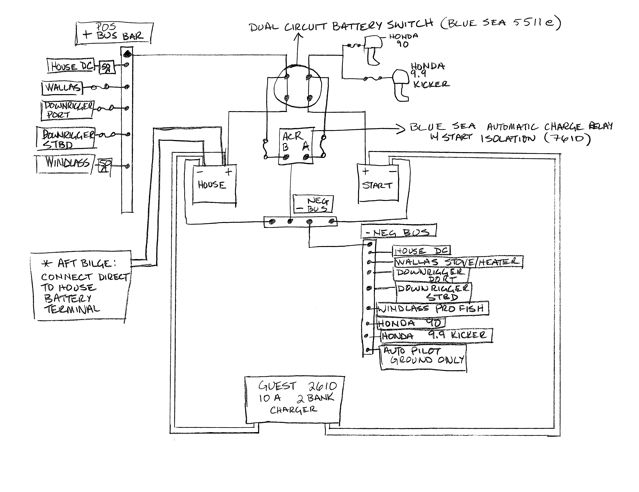 DUAL CIRCUIT BATTERY SWITCH (BLUE SEA 5511e)
POS
+ BUS BAR
HONDA
90
HONDA
9.9
KICKER
HOUSE DC
WALLAS
DOWNRIGGER
PORT
DOWNRIGGER
STBD
WINDLASS
ACR
B A
BLUE SEA AUTOMATIC CHARGE RELAY
W START ISOLATION (7610)
- +
HOUSE
+ -
START
NEG
- BUS
- NEG BUS
HOUSE DC
WALLAS STOVE/HEATER
DOWNRIGGER
PORT
DOWNRIGGER
STBD
WINDLASS PRO FISH
HONDA 90
HONDA 9.9 KICKER
AUTO PILOT
GROUND ONLY
* AFT BILGE:
CONNECT DIRECT
TO HOUSE
BATTERY
TERMINAL
GUEST 2610
10 A 2 BANK
CHARGER